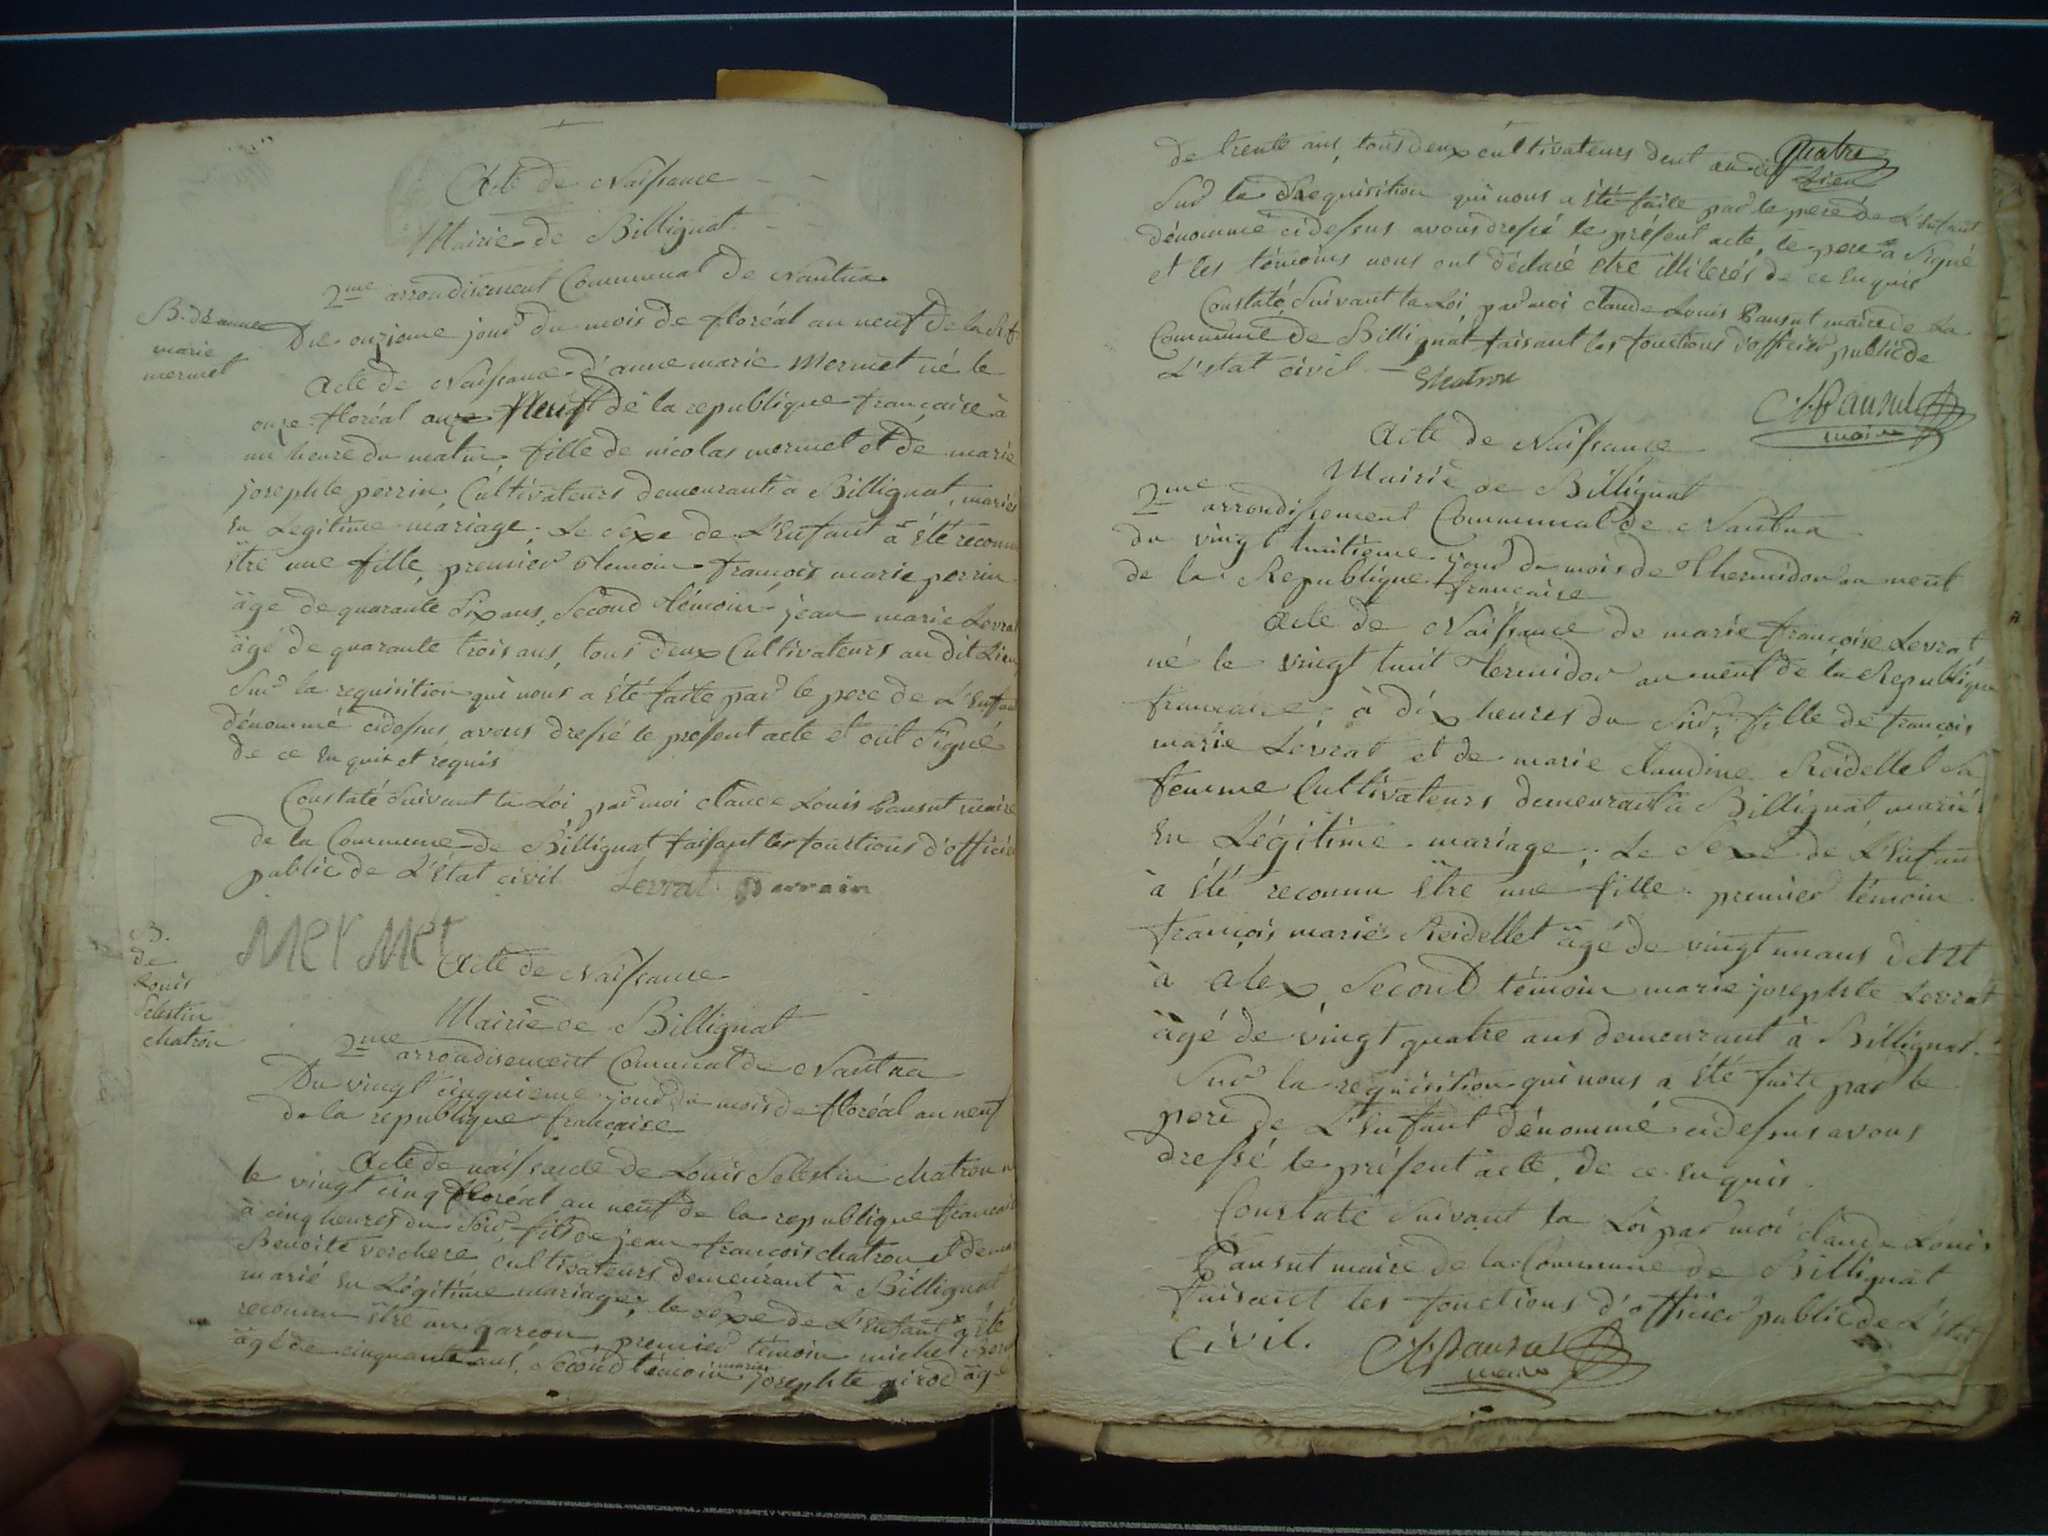 Acte de Naissance
Mairie de Billignat
2me arrondisement Communal de Nantua
B. d'anne
marie
mermet
Du onzieme jour du mois de floréal an neuf de la Rf.
Acte de Naissance d'anne marie Mermet né le
onze floréal an neuf de la republique française à
un heure du matin, fille de nicolas mermet et de marie
josephte perrin Cultivateurs demeurant à Billignat, mariés
En Legitime mariage, Le sexe de L'Enfant à été reconnu
Etre une fille, premier temoin françois marie perrin
âgé de quarante six ans, Second témoin jean marie Levrat
âgé de quarante trois ans, tous deux Cultivateurs au dit Lieu
Sur la requisition qui nous a été faite par le pere de L'Enfant
dénommé cidessus, avons dressé le present acte et ont signé
de ce Enquis et réquis
Constaté suivant la Loi par moi claude Louis Pansut maire
de la Commune de Billignat faisant les fonctions d'officier
public de L'état civil Levrat Perrain
Mermet
B.
de
Louis
Selestin
chatron
Acte de Naissance
Mairie de Billignat
2me arrondisement Communal de Nantua
Du vingt cinquieme jour du mois de floréal an neuf
de la republique française
Acte de naissance de Louis Selestin chatron né
le vingt cinq floréal an neuf de la republique francaise
à cinq heures du soir, fils de jean françois chatron et de
Benoite verchere, cultivateurs demeurant à Billignat
marié En Légitime mariage, le sexe de L'Enfant à été
reconnu Etre un garçon, premier témoin michel
âgé de cinquante ans, Second témoin marie josephte girod âgé
de trente ans, tous deux cultivateurs du dit Lieu
quatre
Sur la Requisition qui nous a été faite par le pere de L'Enfant
dénommé cidessus avons dressé le présent acte, le pere à signé
et les témoins nous ont déclaré être illiterés de ce Enquis
Constaté, suivant la Loi, par moi claude Louis Pansut maire de la
Commune de Billignat faisant les fonctions d'officier public de
L'état civil. Chatron
Pansut
maire
Acte de Naissance
Mairie de Billignat
2me arrondissement Communal de Nantua
du vingt huitieme jour du mois de Thermidor an neuf
de la Republique francaise
Acte de Naissance de marie françoise Levrat
né le vingt huit termidor an neuf de la Republique
francaise, à dix heures du soir, fille de françois
marie Levrat et de marie claudine Reidellet sa
femme Cultivateurs demeurant à Billignat, marié
En Légitime mariage, Le Sexe de L'Enfant
à été reconnu Etre une fille. premier témoin
françois marie Reidellet âgé de vingt un ans
à alex, Second témoin marie josephte Levrat
âgé de vingt quatre ans demeurant à Billignat.
Sur la requisition qui nous a été faite par le
pere de L'Enfant dénommé cidessus avons
dressé le présent acte, de ce Enquis.
Constaté suivant la Loi par moi claude Louis
Pansut maire de la Commune de Billignat
faisant les fonctions d'officier public de L'état
Civil. Pansut
maire